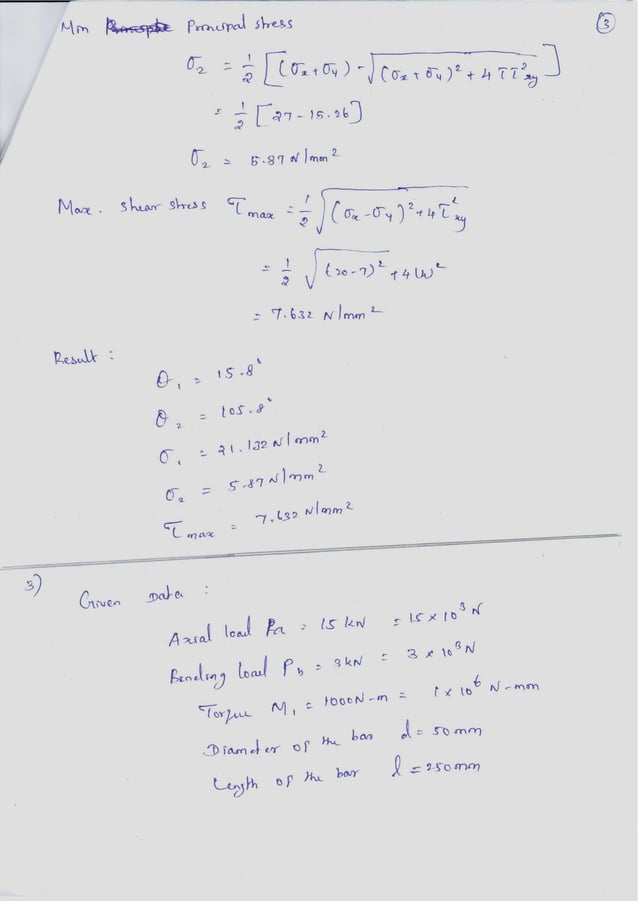 Min Principal stress
3
σ2 = 1/2 [(σx + σy) - √(σx + σy)² + 4 τ τ²xy]
= 1/2 [27 - 15.26]
σ2 = 5.87 N/mm²
Max. shear stress τmax = 1/2 √(σx - σy)² + 4 τ²xy
= 1/2 √(20-7)² + 4(4)²
= 7.632 N/mm²
Result :
θ1 = 15.8°
θ2 = 105.8°
σ1 = 21.132 N/mm²
σ2 = 5.87 N/mm²
τmax = 7.632 N/mm²
3) Given Data :
Axial load Pa = 15 kN = 15 × 10³ N
Bending load Pb = 3 kN = 3 × 10³ N
Torque M1 = 1000 N-m = 1 × 10⁶ N-mm
Diameter of the bar d = 50 mm
Length of the bar l = 250 mm